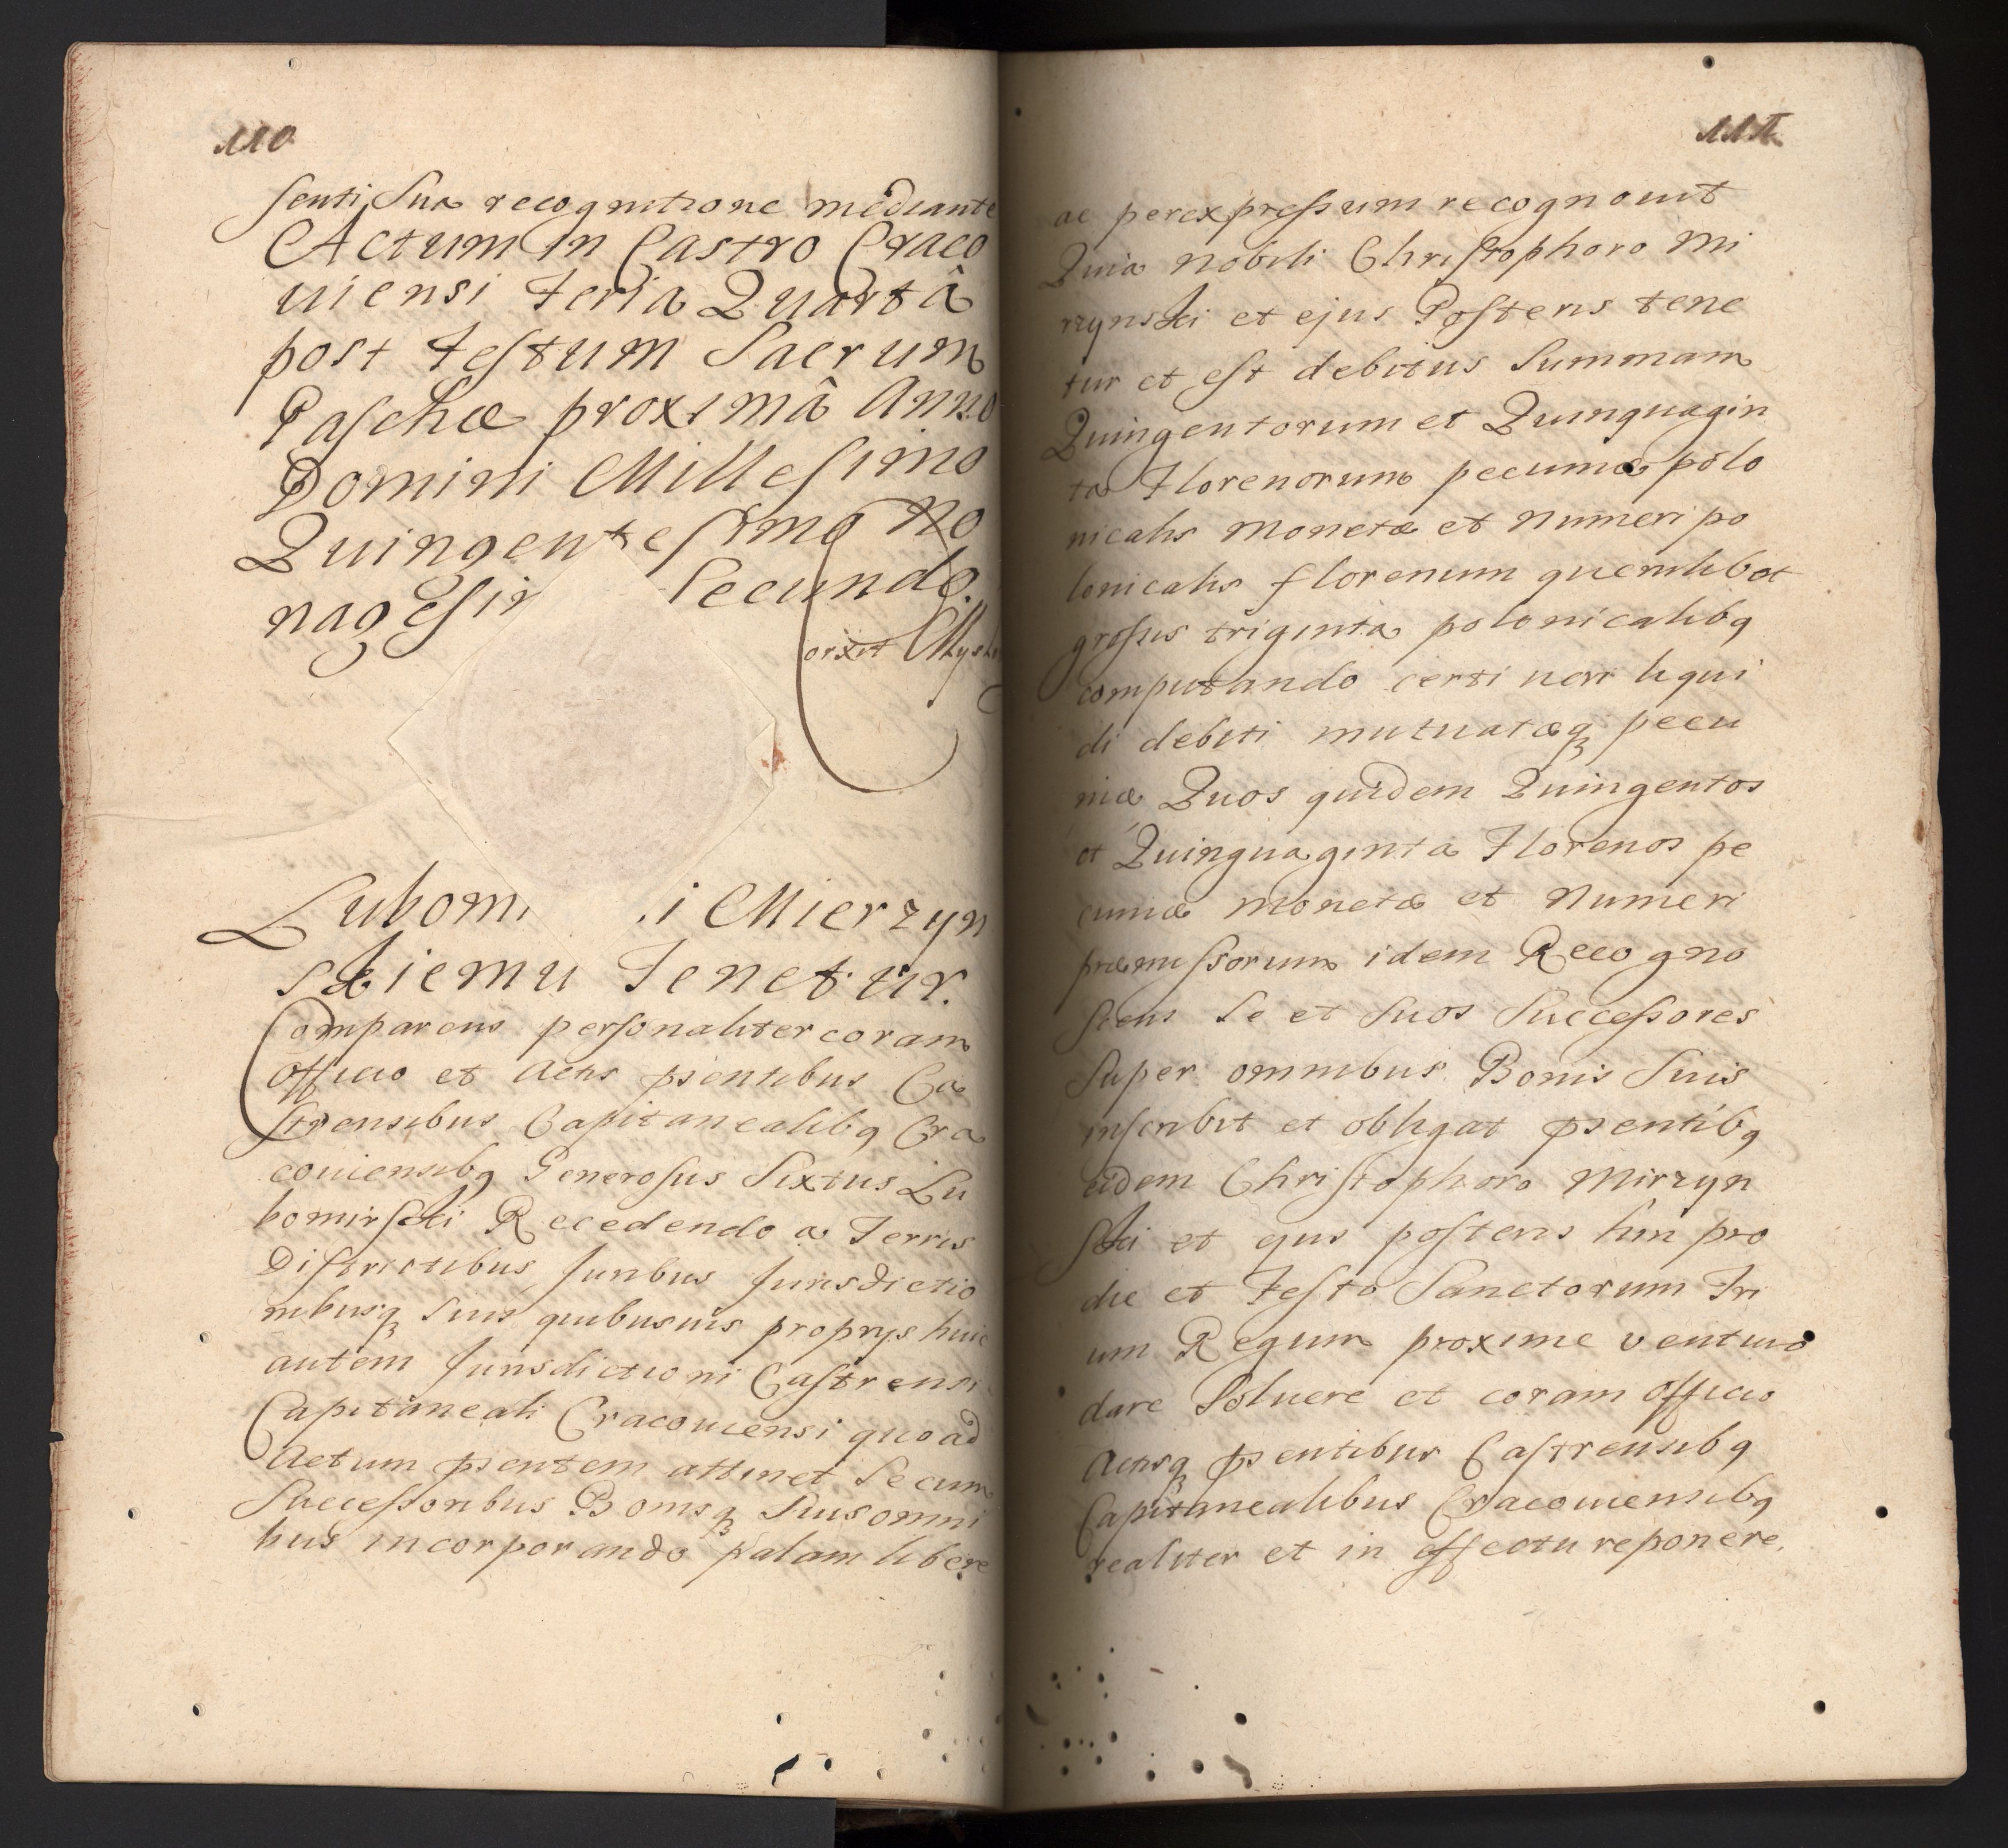 110
senti Sua recognitione mediante
Actum in Castro Craco
uiensi Feria Quartâ
post Festum Sacrum
Paschæ proximâ Anno
Domini Millesimo
Quingentesimo No
nagesi Secundo.
orxit
Lubom i Mierzyn
skiemu Tenetur.
Comparens personaliter coram
Officio et Actis pſentibus Ca
strensibus Capitanealibq Cra
couiensibq Generosus Sixtus Lu
bomirski Recedendo a Terris
Districtibus Juribus Jurisdictio
nibusq suis quibusuis proprys huic
autem Jurisdictioni Castrensi
Capitaneali Cracouiensi quoad
Actum pſentem attinet Se cum
Successoribus Bonisq Suis omni
bus incorporando palam libere
111
ac per expressum recognouit
Quia Nobili Christophoro Mi
rzynski et ejus Posteris tene
tur et est debitus Summam
Quingentorum et Quinquagin
ta Florenorum pecuniæ polo
nicalis Monetæ et Numeri po
lonicalis florenum quemlibet
grossis triginta polonicalibq
computando certi ueri liqui
di debiti mutuatæq pecu
niæ Quos quidem Quingentos
et Quinquaginta Florenos pe
cuniæ Monetæ et Numeri
præmissorum idem Recogno
scens Se et Suos Successores
Super omnibus Bonis Suis
inscribit et obligat pſentibq
eidem Christophoro Mirzyn
ski et ejus posteris hin pro
die et Festo Sanctorum Tri
um Regum proxime venturo
dare Soluere et coram officio
Actisq pſentibus Castrensibq
Capitanealibus Cracouiensibq
realiter et in effectu reponere.